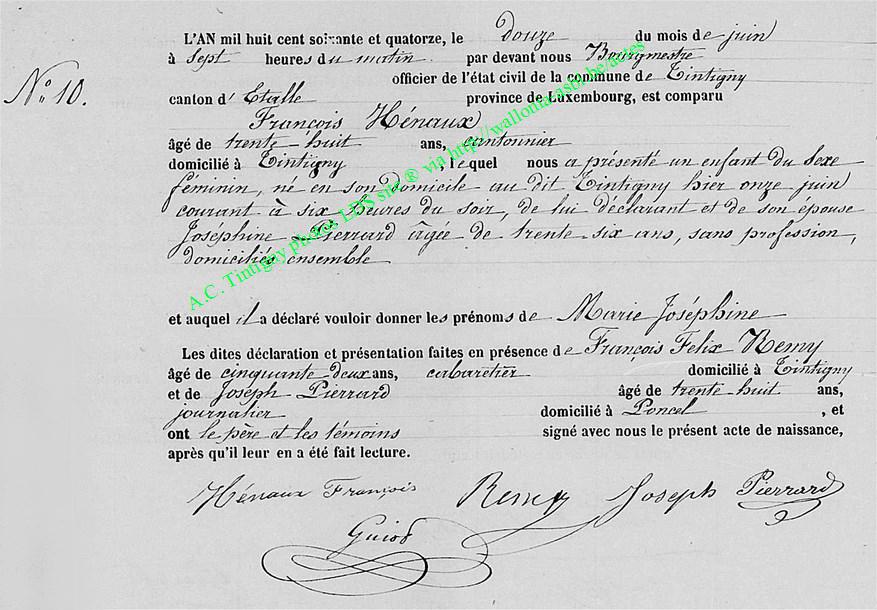 L'AN mil huit cent soixante et quatorze, le douze du mois de juin
à sept heures du matin par devant nous Bourgmestre
officier de l'état civil de la commune de Tintigny
N° 10.
canton d'Etalle province de Luxembourg, est comparu
François Hénaux
âgé de trente huit ans, cantonnier
domicilié à Tintigny, lequel nous a présenté un enfant du sexe
féminin, né en son domicile au dit Tintigny hier onze juin
courant à six heures du soir, de lui déclarant et de son épouse
Joséphine Pierrard âgée de trente-six ans, sans profession,
domiciliés ensemble
et auquel il a déclaré vouloir donner les prénoms de Marie Joséphine
Les dites déclaration et présentation faites en présence de François Felix Remy
âgé de cinquante deux ans, cabaretier domicilié à Tintigny
et de Joseph Pierrard âgé de trente huit ans,
journalier domicilié à Poncel, et
ont le père et les témoins signé avec nous le présent acte de naissance,
après qu'il leur en a été fait lecture.
Hénaux François Remy Joseph Pierrard
Guiot
A.C. Tintigny photos LDS site ® via http://wallonia.asbl.be/actes